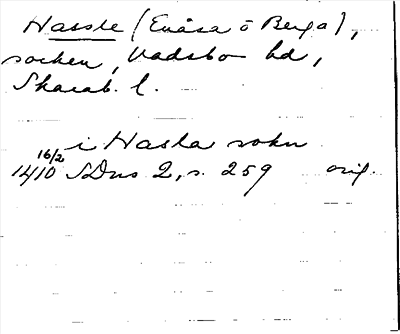 Hassle (Enåsa o Berga),
socken, Vadsbo hd,
Skarab. l.
i Hasla sokn
16/2
1410 SDns 2, s. 259 orig.